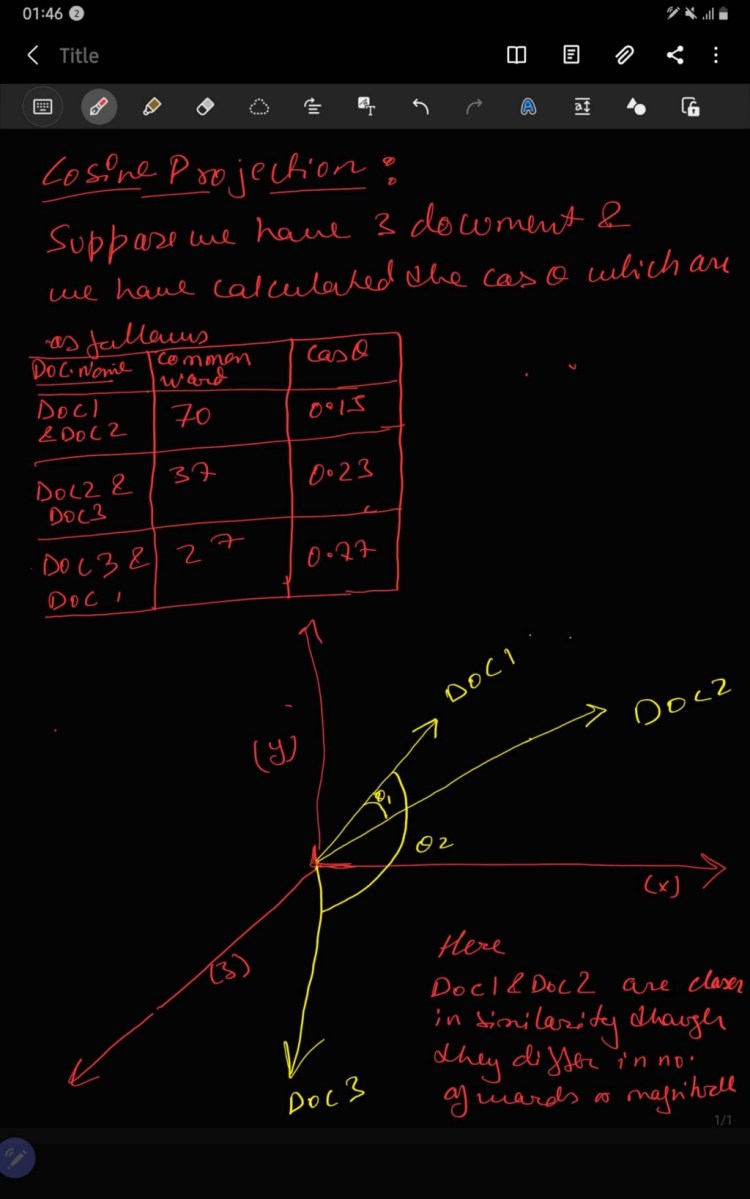 01:46 2
Title
Cosine Projection :
Suppose we have 3 document &
we have calculated the cos θ which are
as follows
Doc. Name | Common word | cos θ
DOC1 & DOC2 | 70 | 0.15
DOC2 & DOC3 | 37 | 0.23
DOC3 & DOC1 | 27 | 0.77
DOC1
DOC2
(y)
θ1
θ2
(x)
(z)
Here
Doc1 & Doc2 are closer
in similarity though
they differ in no.
of words or magnitude
DOC3
1/1